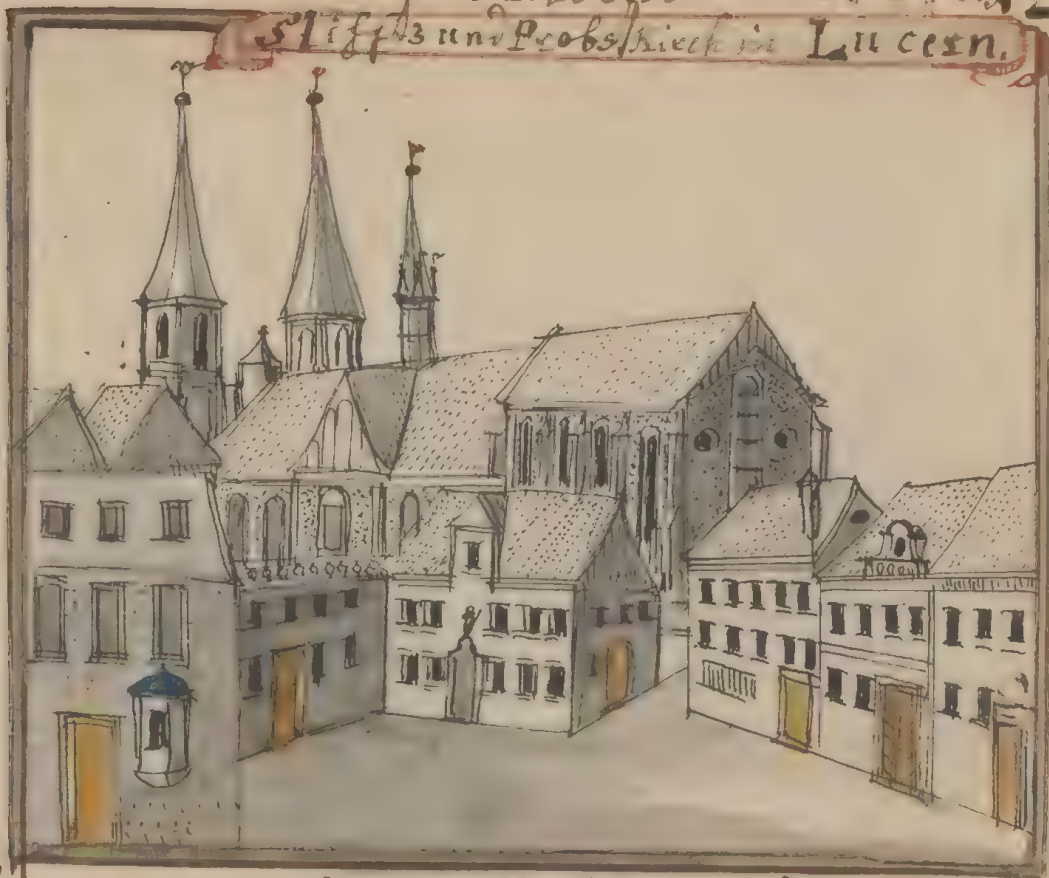 Stiffts und Probst Kirch in Lucern.